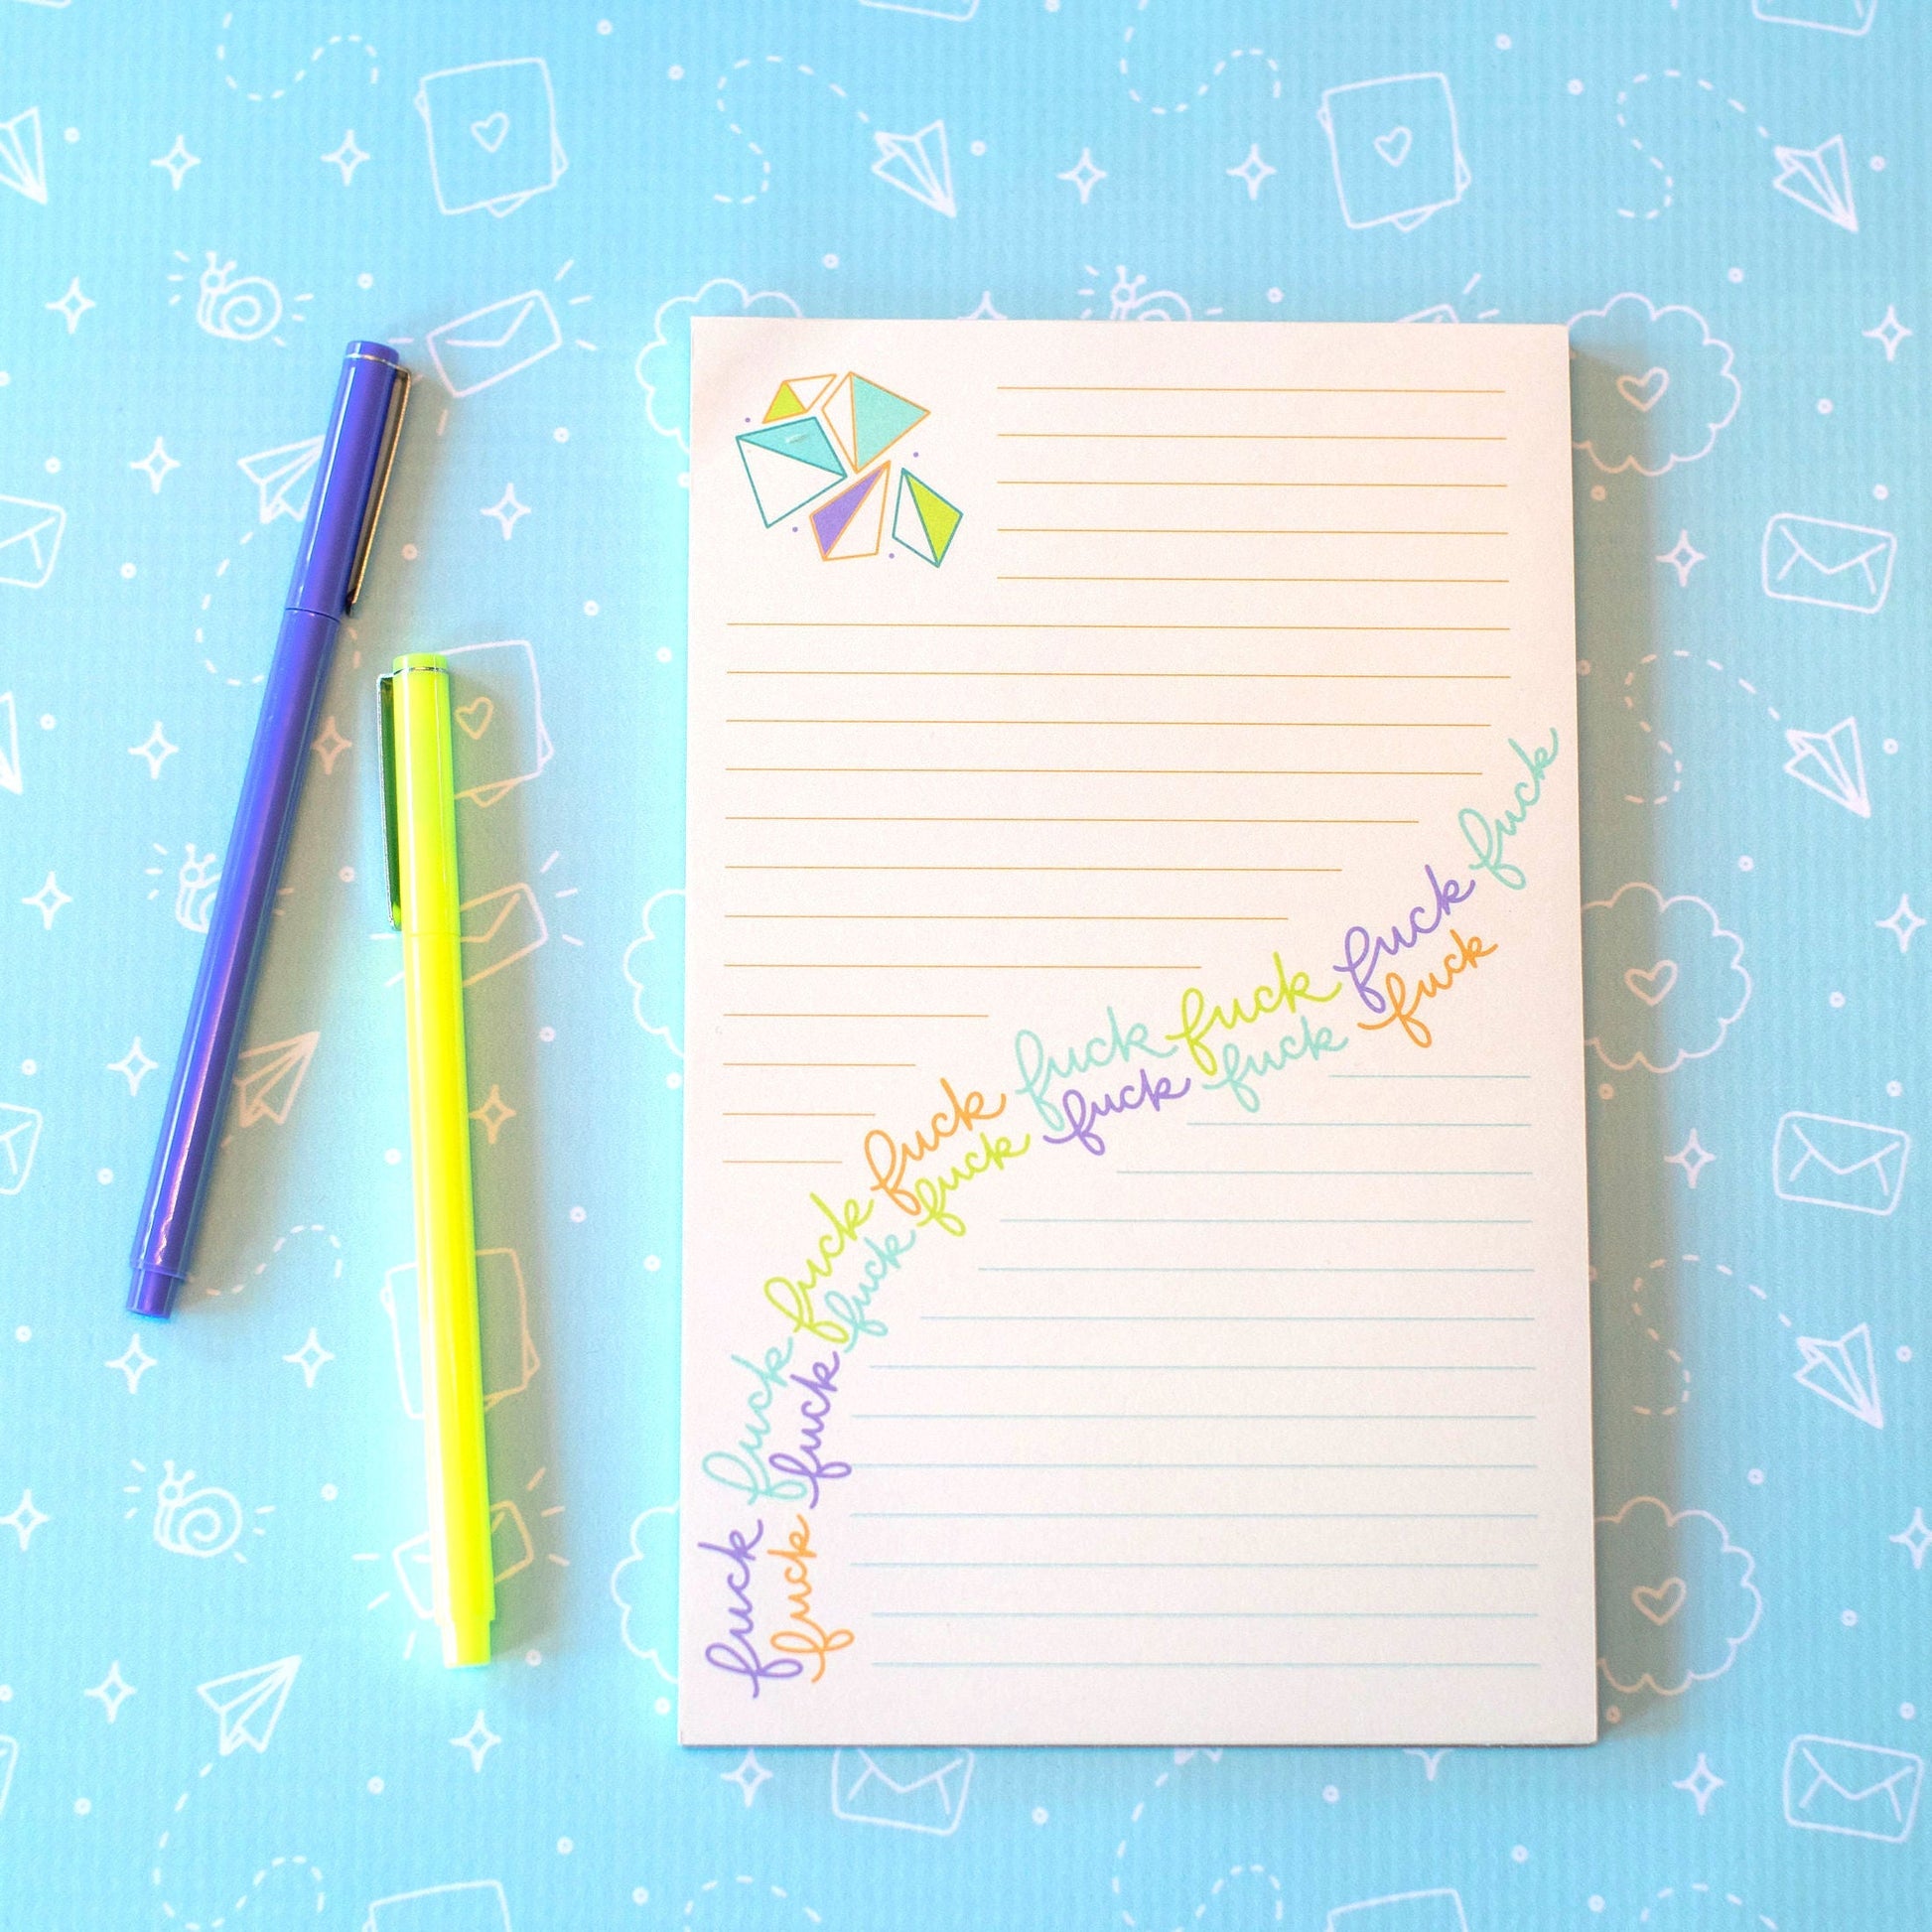 fuck fuck fuck fuck fuck fuck fuck fuck
fuck fuck fuck fuck fuck fuck fuck